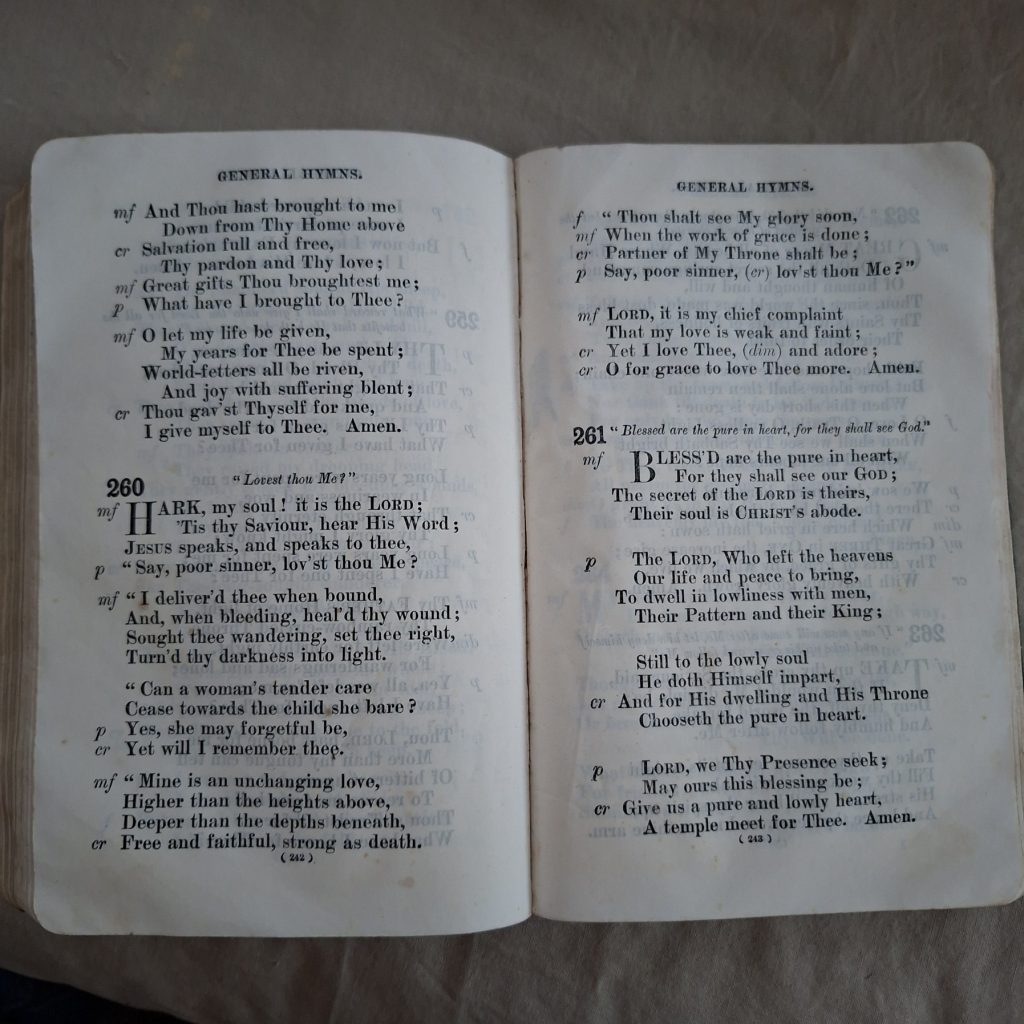 GENERAL HYMNS.
mf And Thou hast brought to me
Down from Thy Home above
cr Salvation full and free,
Thy pardon and Thy love;
mf Great gifts Thou broughtest me;
p What have I brought to Thee?
mf O let my life be given,
My years for Thee be spent;
World-fetters all be riven,
And joy with suffering blent;
cr Thou gav'st Thyself for me,
I give myself to Thee. Amen.
260 "Lovest thou Me?"
mf HARK, my soul! it is the LORD;
'Tis thy Saviour, hear His Word;
JESUS speaks, and speaks to thee,
p "Say, poor sinner, lov'st thou Me?
mf "I deliver'd thee when bound,
And, when bleeding, heal'd thy wound;
Sought thee wandering, set thee right,
Turn'd thy darkness into light.
"Can a woman's tender care
Cease towards the child she bare?
p Yes, she may forgetful be,
cr Yet will I remember thee.
mf "Mine is an unchanging love,
Higher than the heights above,
Deeper than the depths beneath,
cr Free and faithful, strong as death.
(242)
GENERAL HYMNS.
f "Thou shalt see My glory soon,
mf When the work of grace is done;
cr Partner of My Throne shalt be;
p Say, poor sinner, (cr) lov'st thou Me?"
mf LORD, it is my chief complaint
That my love is weak and faint;
cr Yet I love Thee, (dim) and adore;
cr O for grace to love Thee more. Amen.
261 "Blessed are the pure in heart, for they shall see God."
mf BLESS'D are the pure in heart,
For they shall see our GOD;
The secret of the LORD is theirs,
Their soul is CHRIST'S abode.
p The LORD, Who left the heavens
Our life and peace to bring,
To dwell in lowliness with men,
Their Pattern and their King;
Still to the lowly soul
He doth Himself impart,
cr And for His dwelling and His Throne
Chooseth the pure in heart.
p LORD, we Thy Presence seek;
May ours this blessing be;
cr Give us a pure and lowly heart,
A temple meet for Thee. Amen.
(243)